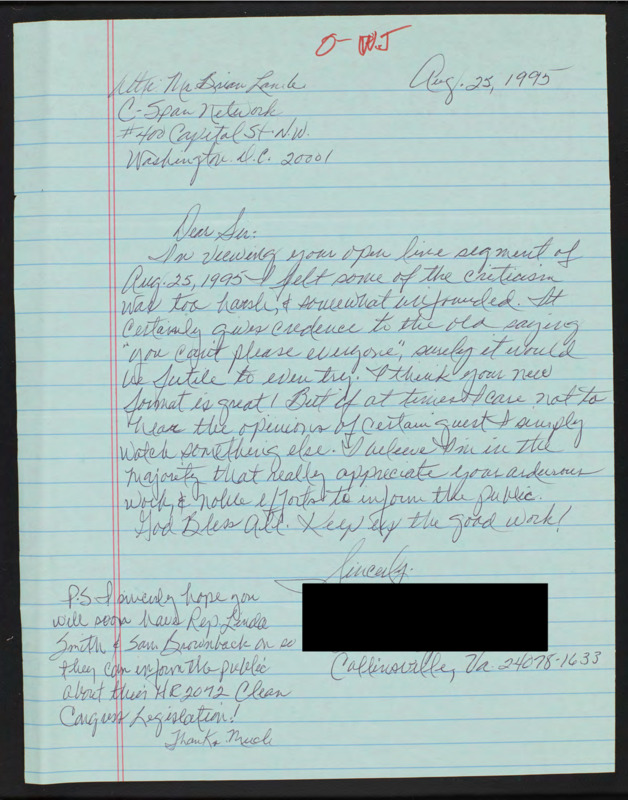 O- WJ
Aug. 25, 1995
Attn: Mr. Brian Lamb
C-Span Network
#400 Capital St. N.W.
Washington. D.C. 20001
Dear Sir:
In viewing your open line segment of
Aug. 25, 1995 I felt some of the criticism
was too harsh, & somewhat unfounded. It
certainly gives credence to the old saying
"you can't please everyone", surely it would
be futile to even try. I think your new
format is great! But if at times I care not to
hear the opinions of certain guest I simply
watch something else. I believe I'm in the
majority that really appreciate your arduous
work, & noble efforts to inform the public.
God Bless All. Keep up the good work!
Sincerly.
Collinsville, Va. 24078-1633
P.S. I sincerely hope you
will soon have Rep. Linda
Smith & Sam Brownback on so
they can inform the public
about their HR 2072 Clean
Congress Legislation!
Thanks Much